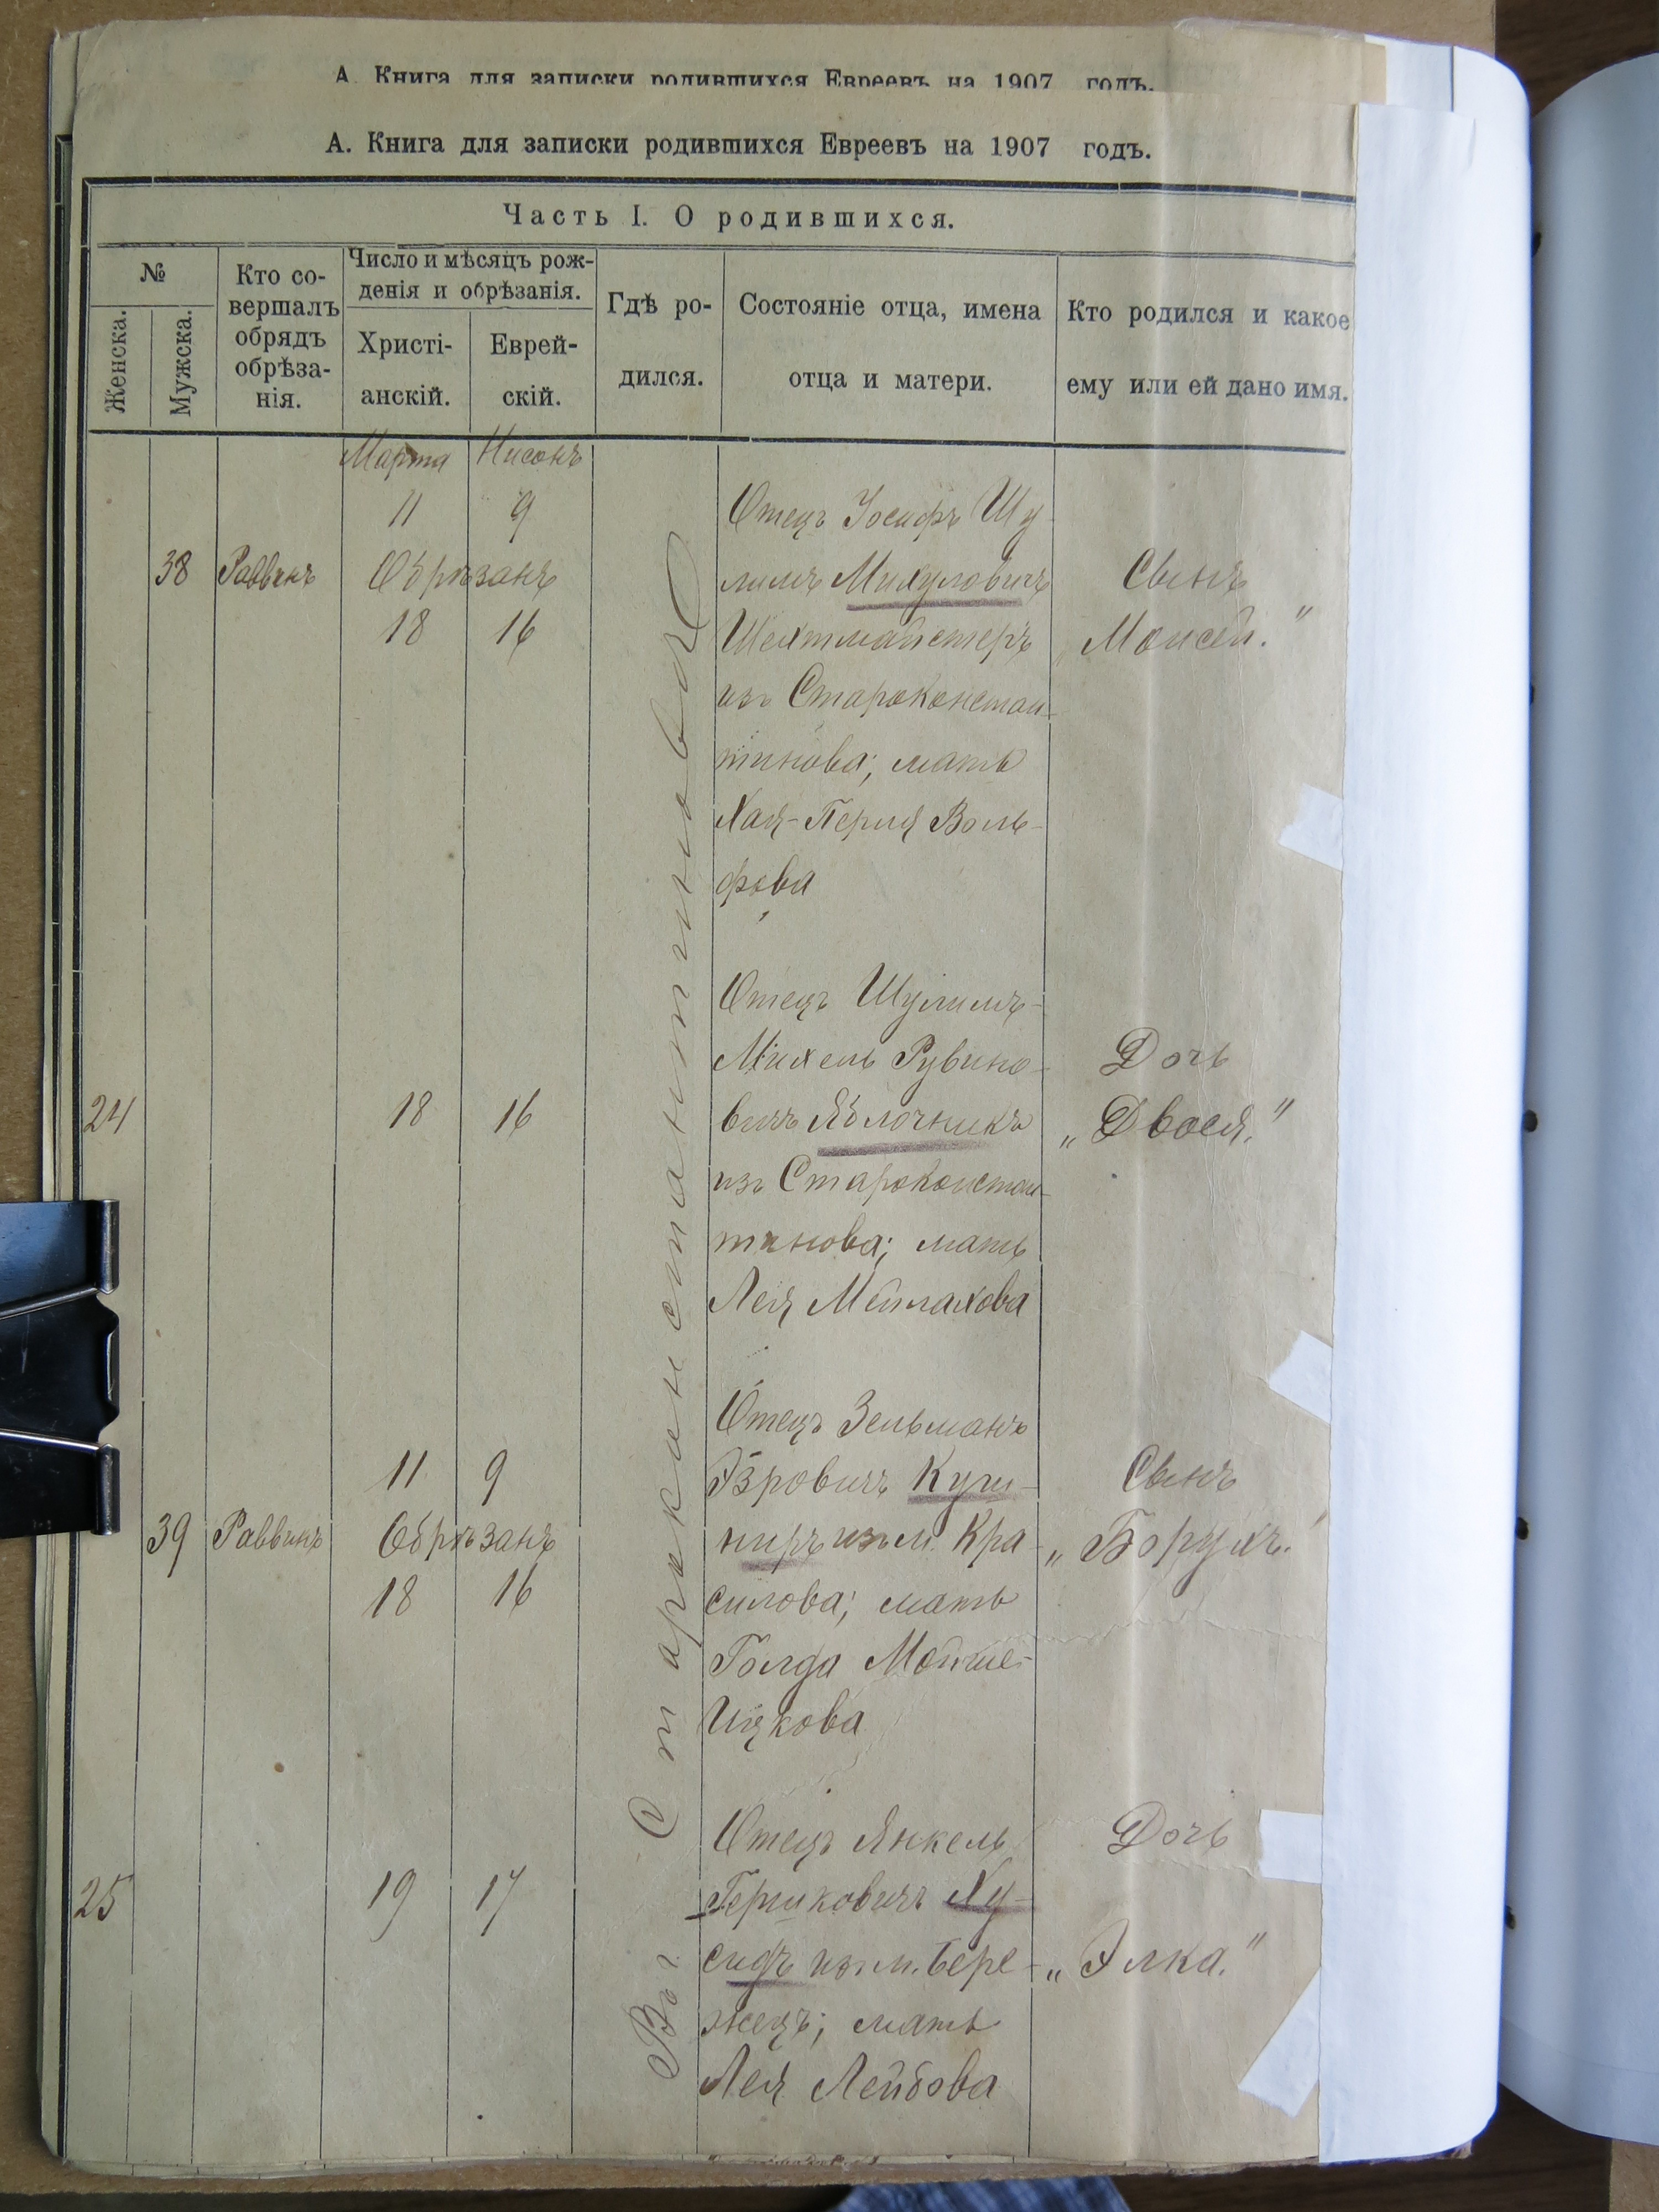 А. Книга для записки родившихся Евреевъ на 1907 годъ.
А. Книга для записки родившихся Евреевъ на 1907 годъ.
Часть I. О родившихся.
№
Женска.
Мужска.
Кто со-
вершалъ
обрядъ
обрѣза-
нія.
Число и мѣсяцъ рож-
денія и обрѣзанія.
Христі-
анскій.
Еврей-
скій.
Гдѣ ро-
дился.
Состояніе отца, имена
отца и матери.
Кто родился и какое
ему или ей дано имя.
Марта Нисонъ
11 9
38 Раввинъ Обрѣзанъ
18 16
Въ Староконстантиновѣ
Отецъ Іосифъ Шу-
лимъ Михуловичъ
Шехтмайстеръ
изъ Староконстан-
тинова; мать
Хая-Перля Воль-
фова
Сынъ
„Моисей."
24 18 16
Отецъ Шулимъ-
Михель Рувино-
вичъ Яблочникъ
изъ Староконстан-
тинова; мать
Лея Мейлахова
Дочь
„Двося."
11 9
39 Раввинъ Обрѣзанъ
18 16
Отецъ Зельманъ
Эзровичъ Куш-
ниръ изъ м. Кра-
силова; мать
Голда Мойше-
Ицкова
Сынъ
„Борухъ."
25 19 17
Отецъ Янкель
Гершковичъ Ху-
сидъ изъ м. Бере-
жецъ; мать
Лея Лейбова
Дочь
„Элка."